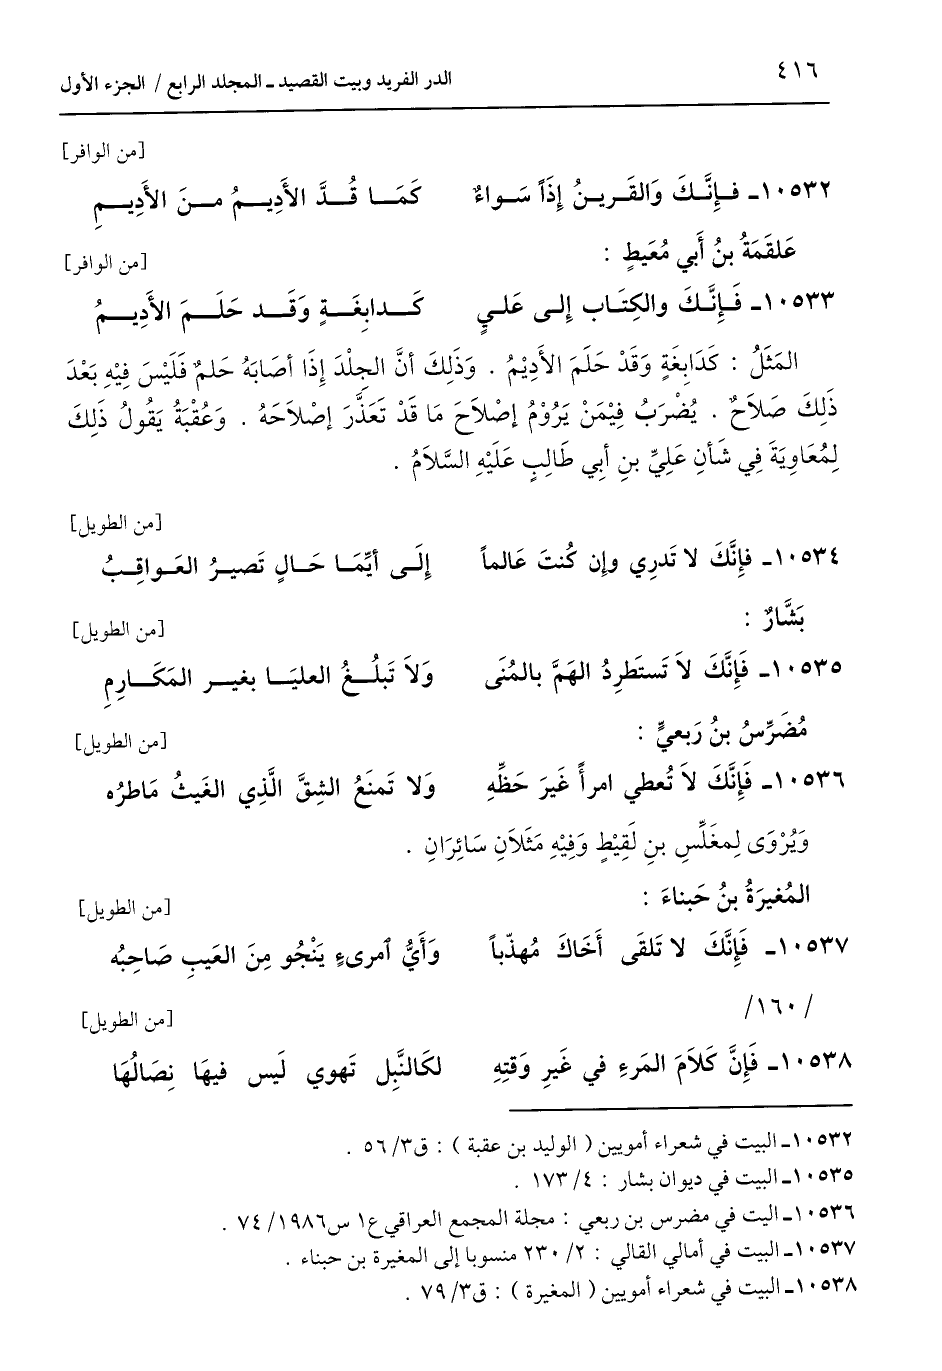 ٤١٦
الدر الفريد وبيت القصيد ـ المجلد الرابع / الجزء الأول
[من الوافر]
١٠٥٣٢ـ فَإِنَّكَ وَالقَرينُ إِذَاً سَواءٌ كَمَا قُدَّ الأَدِيمُ مِنَ الأَدِيمِ
عَلقَمَةُ بنُ أَبي مُعَيطٍ :
[من الوافر]
١٠٥٣٣ـ فَإِنَّكَ والكِتَابِ إِلى عَليٍ كَدابِغَةٍ وَقَد حَلَمَ الأَدِيمُ
المَثَلُ : كَدَابِغَةٍ وَقَدْ حَلَمَ الأَدِيْمُ . وَذَلِكَ أنَّ الجِلْدَ إِذَا أصَابَهُ حلمٌ فَلَيْسَ فِيْهِ بَعْدَ
ذَلِكَ صَلاَحٌ . يُضْرَبُ فِيْمَنْ يَرُوْمُ إصْلاَحَ مَا قَدْ تَعَذَّرَ إصْلاَحَهُ . وَعُقْبَةُ يَقُولُ ذَلِكَ
لِمُعَاوِيَةَ فِي شَأنِ عَلِيِّ بنِ أبي طَالِبٍ عَلَيْهِ السَّلاَمُ .
[من الطويل]
١٠٥٣٤ـ فإِنَّكَ لا تَدرِي وإن كُنتَ عَالماً إِلَى أيِّمَا حَالٍ تَصيرُ العَواقِبُ
بَشَّارٌ :
[من الطويل]
١٠٥٣٥ـ فَإِنَّكَ لاَ تَستَطرِدُ الهَمَّ بالمُنَى وَلاَ تَبلُغُ العليَا بغيرِ المَكَارِمِ
مُضَرِّسُ بنُ رَبعيٍّ :
[من الطويل]
١٠٥٣٦ـ فَإِنَّكَ لاَ تُعطي امرأً غَيرَ حَظِّهِ وَلا تَمنَعُ الشِقَّ الَّذِي الغَيثُ مَاطرُه
وَيُرْوَى لِمغَلِّسِ بنِ لَقِيْطٍ وَفِيْهِ مَثَلاَنِ سَائِرَانِ .
المُغيرَةُ بنُ حَبناءَ :
[من الطويل]
١٠٥٣٧ـ فَإِنَّكَ لا تَلقَى أَخَاكَ مُهذّباً وَأَيُّ اَمرىءٍ يَنْجُو مِنَ العَيبِ صَاحِبُه
/١٦٠/
[من الطويل]
١٠٥٣٨ـ فَإِنَّ كَلاَمَ المَرءِ في غَيرِ وَقتِهِ لكَالنَّبلِ تَهوي لَيس فيهَا نِصَالُهَا
١٠٥٣٢ـ البيت في شعراء أمويين ( الوليد بن عقبة ) : ق٣/ ٥٦ .
١٠٥٣٥ـ البيت في ديوان بشار : ٤/ ١٧٣ .
١٠٥٣٦ـ اليت في مضرس بن ربعي : مجلة المجمع العراقي ع١ س١٩٨٦/ ٧٤ .
١٠٥٣٧ـ البيت في أمالي القالي : ٢/ ٢٣٠ منسوبا إلى المغيرة بن حبناء .
١٠٥٣٨ـ البيت في شعراء أمويين ( المغيرة ) : ق٣/ ٧٩ .